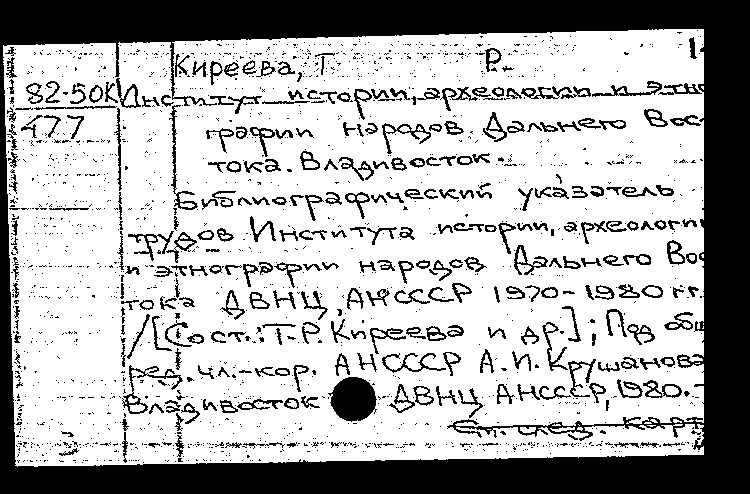 Киреева, Т Р.
82-50К Институт истории, археологии и этно
477 графии народов Дальнего Вос-
тока. Владивосток.
Библиографический указатель
трудов Института истории, археологии
и этнографии народов Дальнего Вос
тока ДВНЦ АНСССР 1970-1980 гг.
/[Сост.: Т.Р. Киреева и др.]; Под общ
ред. чл.-кор. АНСССР А.И. Крушанова
Владивосток ДВНЦ АНСССР, 1980.-
См. след. карт